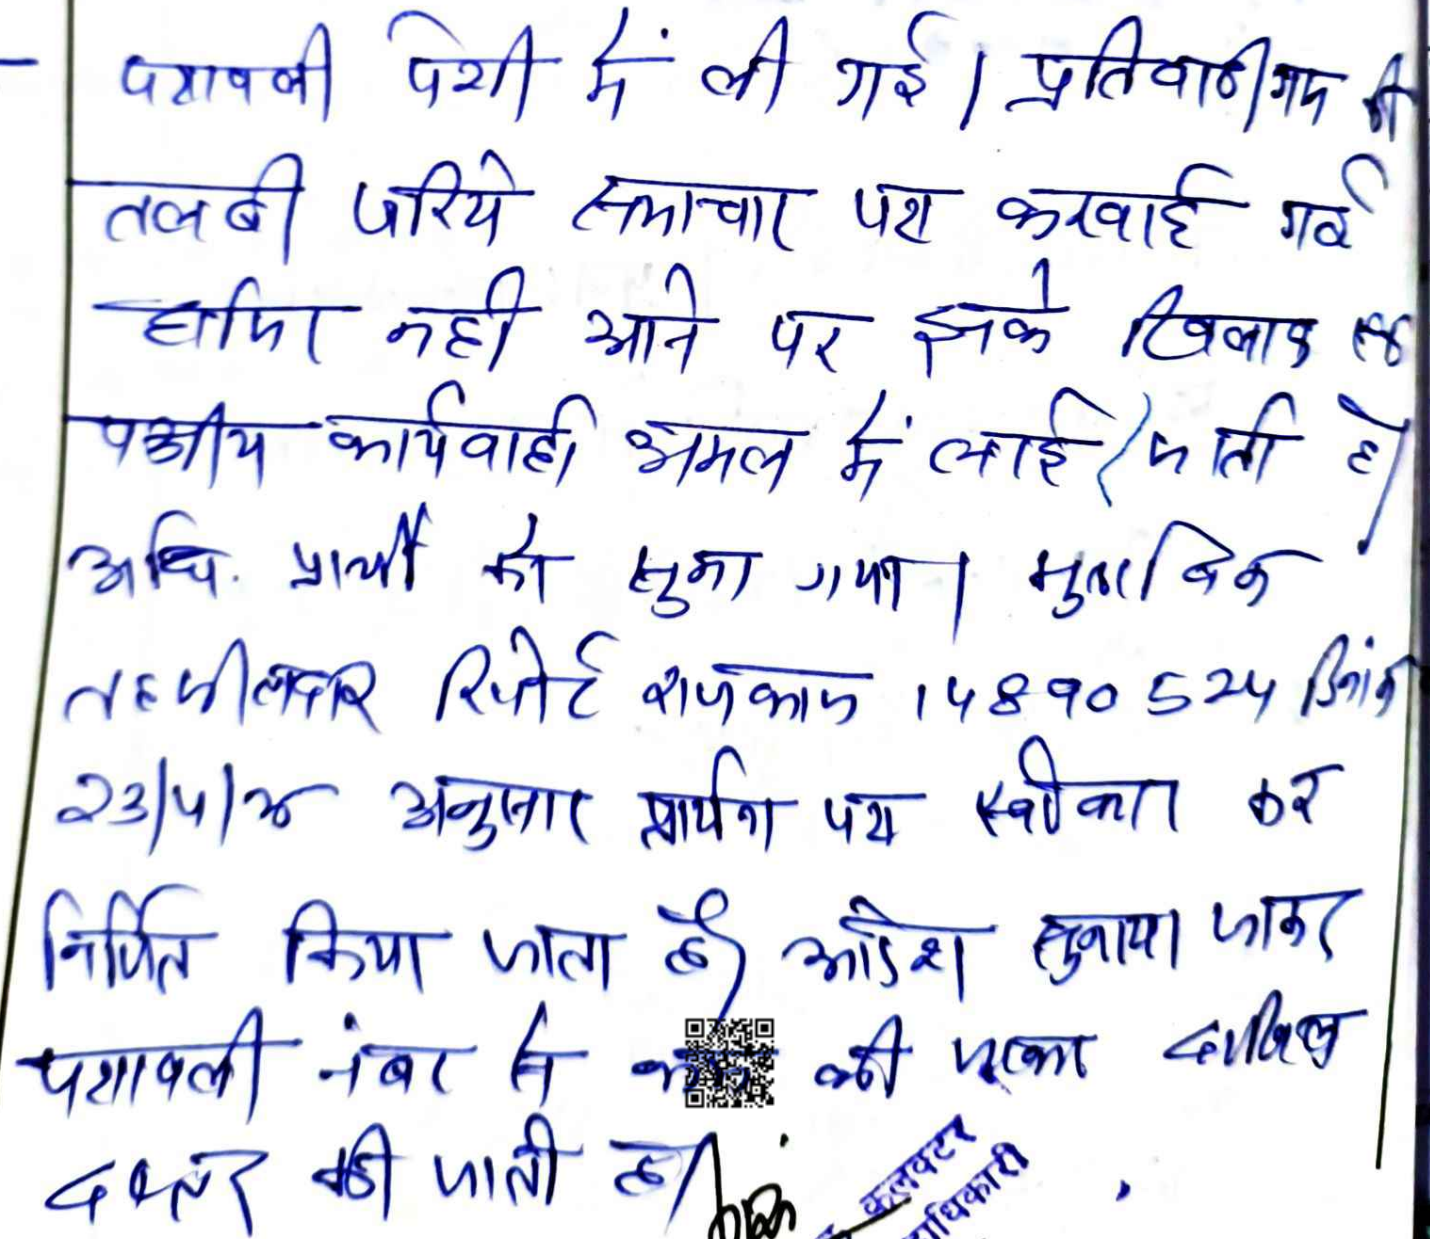 पत्रावली पेशी में ली गई। प्रतिवादीगण की
तलबी जरिये समाचार पत्र करवाई गई
हाजिर नही आने पर इनके खिलाफ एक
पक्षीय कार्यवाही अमल में लाई जाती है।
अधि. प्रार्थी को सुना गया। मुताबिक
तहसीलदार रिपोर्ट राजकाज 14890524 दिनांक
अनुसार प्रार्थना पत्र स्वीकार कर
निर्णित किया जाता है। आदेश सुनाया जाकर
पत्रावली नंबर से की जाकर दाखिल
दफ्तर की जाती है।
कलक्टर